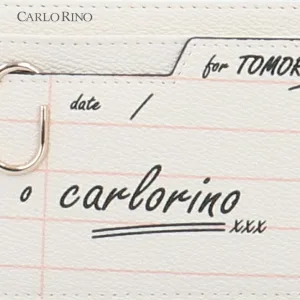 CARLO RINO
for TOMOR
date /
o carlorino
xxx